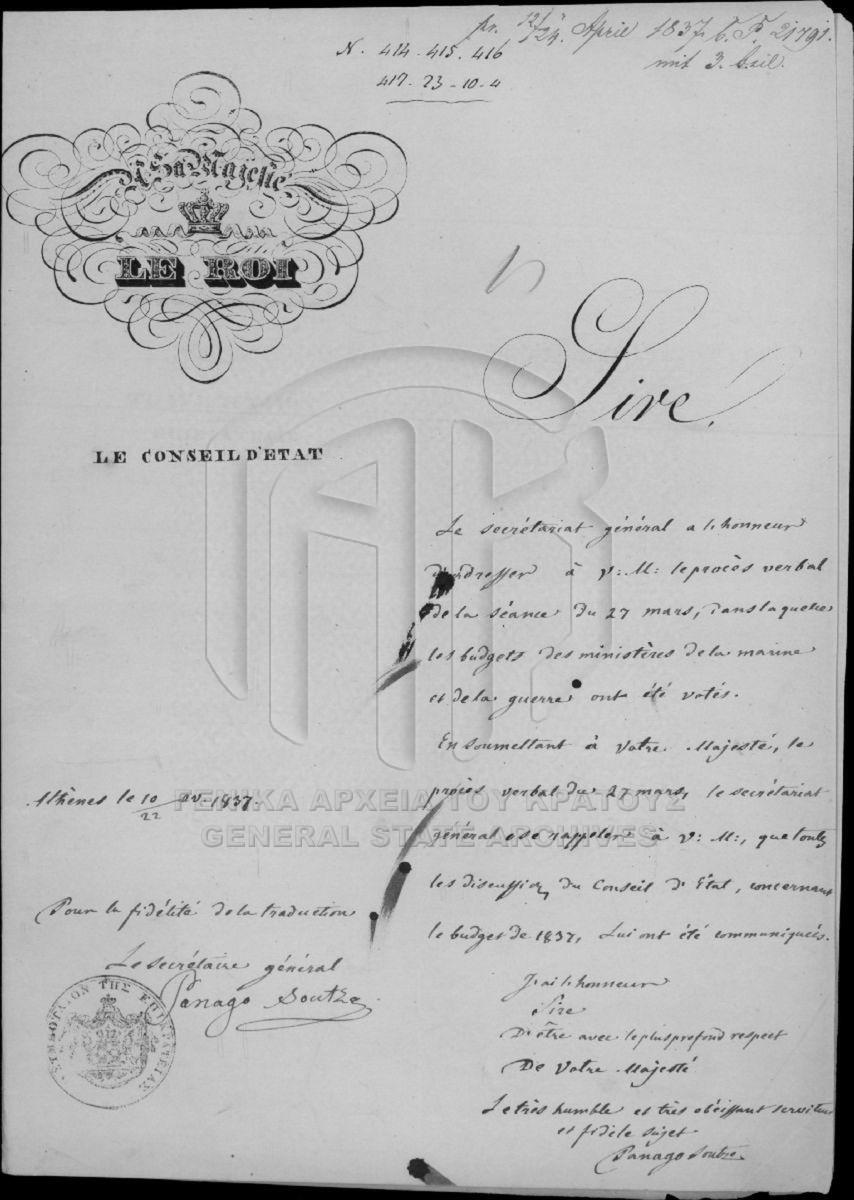 pr. 12/24. April 1837. C. P. 21791.
mit 3. Beil.
N. 414. 415. 416
417. 23-10-4
A Sa Majesté
LE ROI
Sire,
LE CONSEIL D'ETAT
Le secrétariat général a l'honneur
d'adresser à V: M: le procès verbal
de la séance du 27 mars, dans laquelle
les budgets des ministères de la marine
et de la guerre ont été votés.
En soumettant à Votre Majesté, le
procès verbal du 27 mars, le secrétariat
général ose rappeler à V: M:, que toutes
les discussions du Conseil d'État, concernant
le budget de 1837, Lui ont été communiqués.
J'ai l'honneur
Sire
D'être avec le plus profond respect
De Votre Majesté
Le très humble et très obéissant serviteur
et fidèle sujet
Panago Soutzo
Athènes le 10/22 av. 1837.
Pour la fidélité de la traduction
Le secrétaire général
Panago Soutzo
ΣΥΜΒΟΥΛΙΟΝ ΤΗΣ ΕΠΙΚΡΑΤΕΙΑΣ
ΓΕΝΙΚΑ ΑΡΧΕΙΑ ΤΟΥ ΚΡΑΤΟΥΣ
GENERAL STATE ARCHIVES